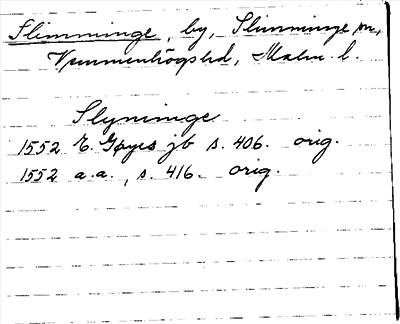 Slimminge, by, Slimminge sn,
Vemmenhögs hd, Malm. l.
Slyninge
1552 E. Gøyes jb s. 406. orig.
1552 a.a., s. 416. orig.